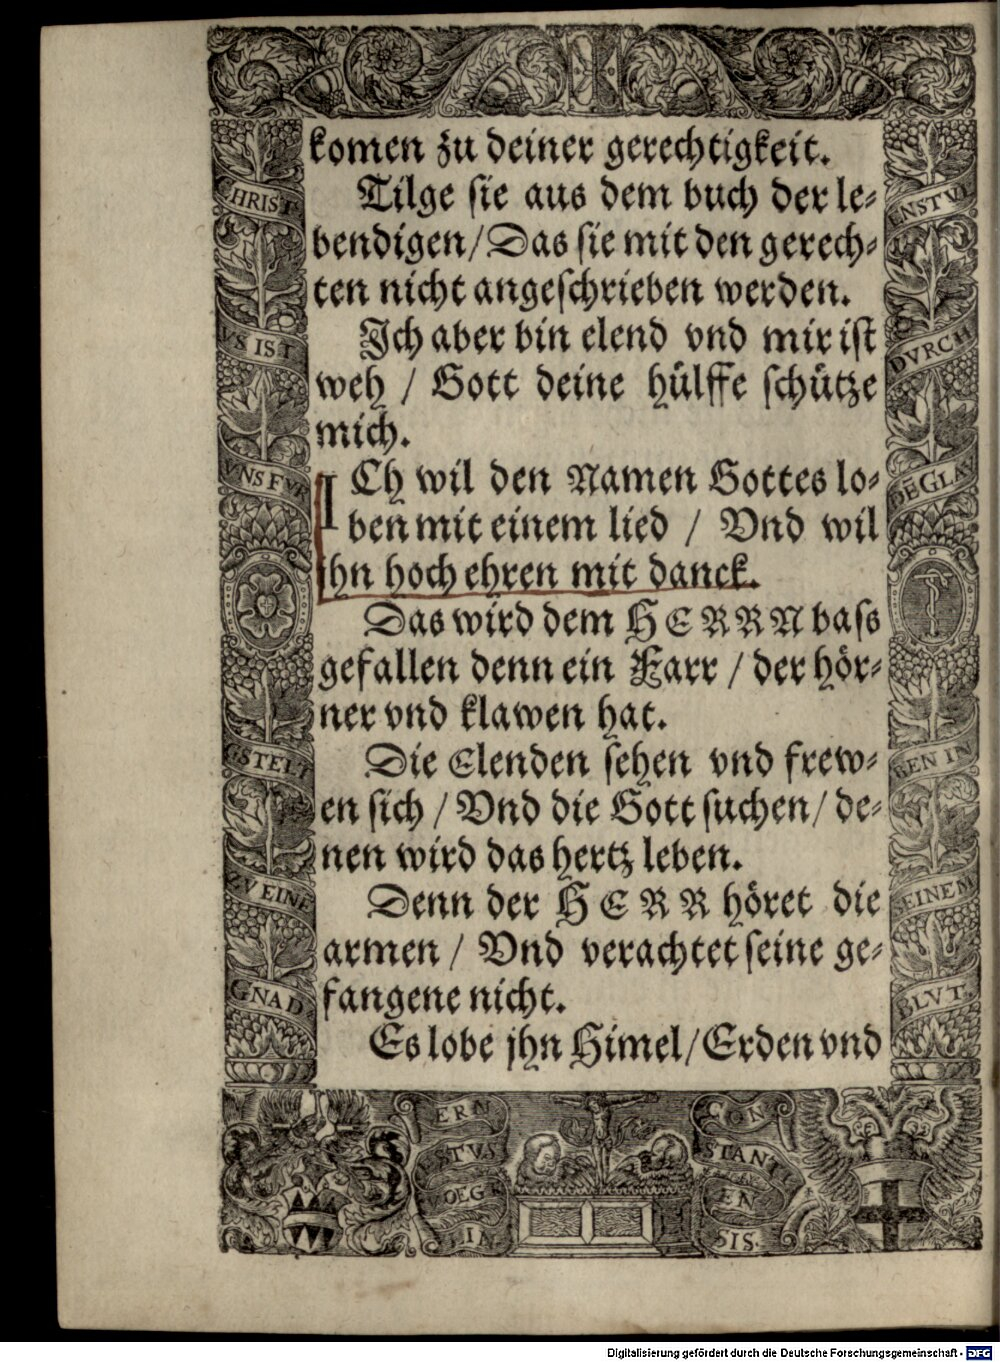 komen zu deiner gerechtigkeit.
Tilge sie aus dem buch der le⸗
bendigen/Das sie mit den gerech⸗
ten nicht angeschrieben werden.
Ich aber bin elend vnd mir ist
weh / Gott deine hülffe schütze
mich.
ICh wil den Namen Gottes lo⸗
ben mit einem lied / Vnd wil
ihn hoch ehren mit danck.
Das wird dem HERRN bass
gefallen denn ein Farr / der hör⸗
ner vnd klawen hat.
Die Elenden sehen vnd frew⸗
en sich / Vnd die Gott suchen/ de⸗
nen wird das hertz leben.
Denn der HERR höret die
armen / Vnd verachtet seine ge⸗
fangene nicht.
Es lobe jhn Himel/Erden vnd
CHRIST
VS IST
VNS FVR
GSTELT
ZV EINE
GNAD
ENSTVL
DVRCH
DĒ GLAV
BEN IN
SEINEM
BLVT.
ERN
ESTVS
VOEGE
LIN
CON
STANT
EN
SIS.
Digitalisierung gefördert durch die Deutsche Forschungsgemeinschaft - DFG